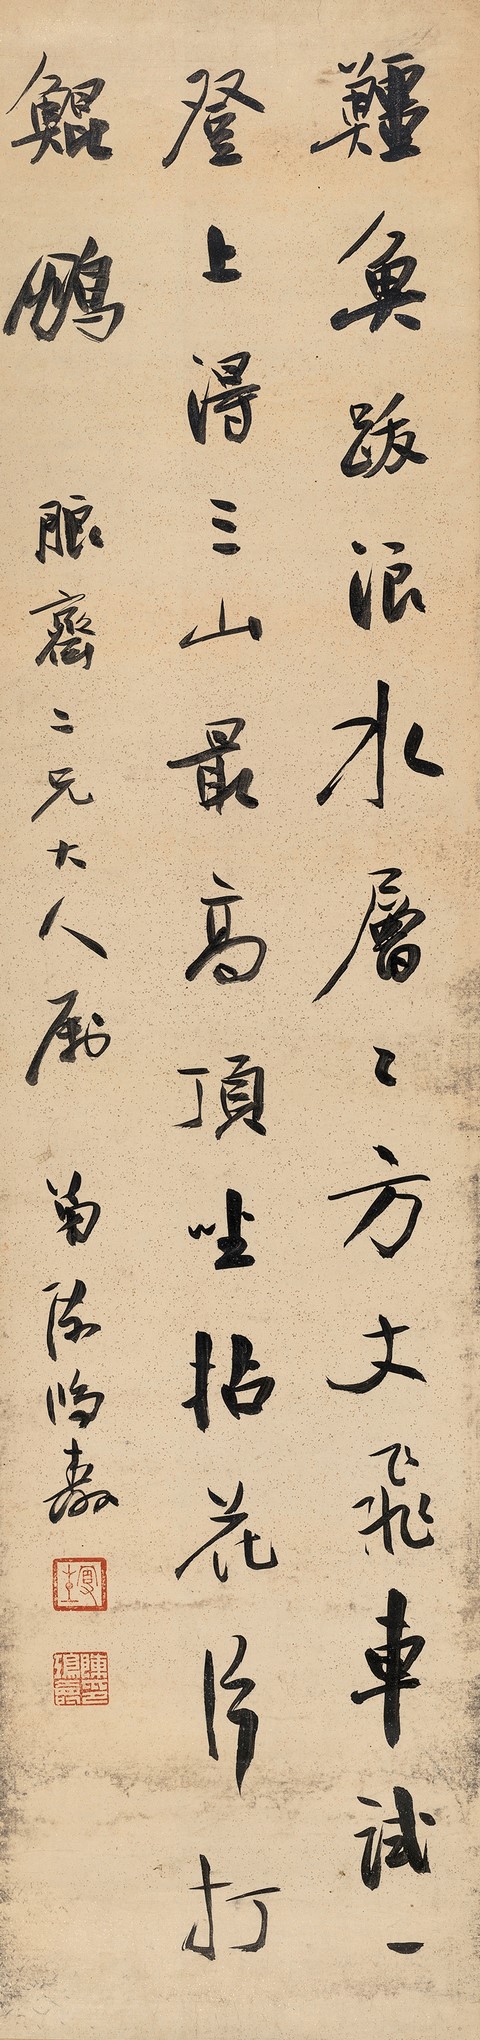 魚跋浪水層〻方丈飛車試一
登上得三山最高頂坐拈花片打
鯤鵬
朖齋二兄大人屬
陳鴻壽
曼生
陳鴻壽印